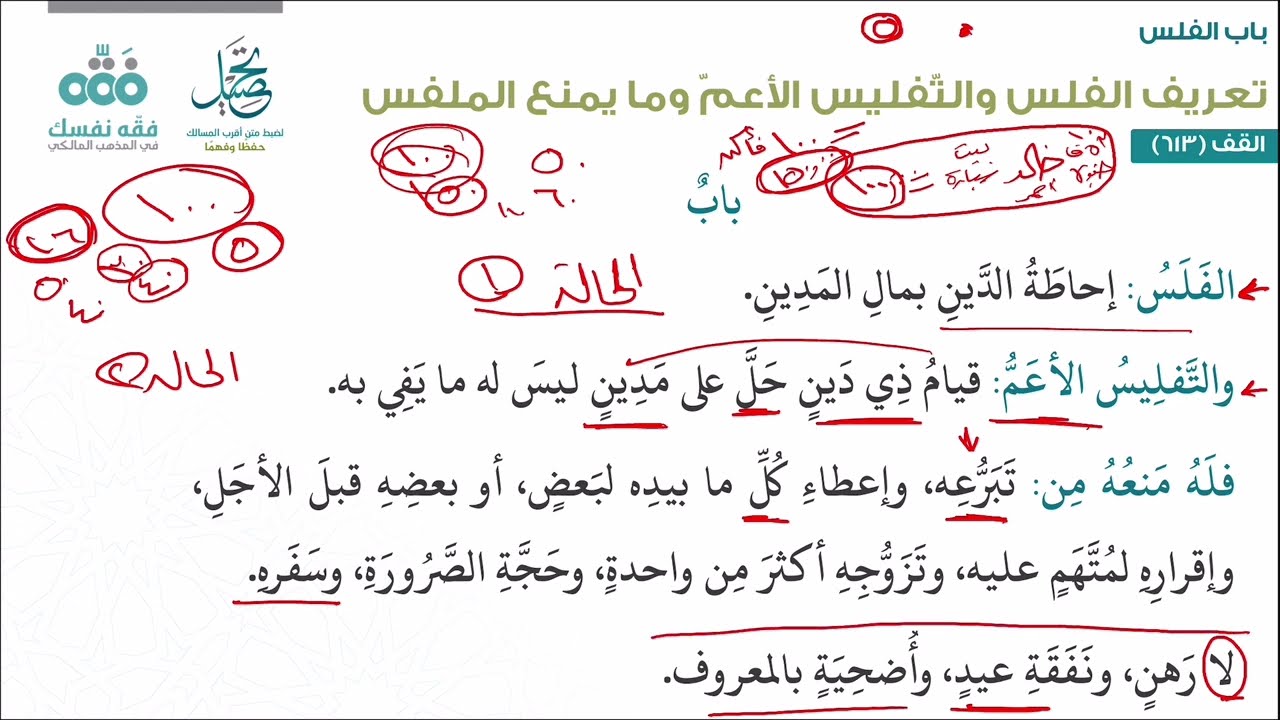 باب الفلس
تعريف الفلس والتّفليس الأعمّ وما يمنع الملفس
القف (٦١٣)
تحصيل
لضبط متن أقرب المسالك
حفظا وفهما
فقه
فقّه نفسك
في المذهب المالكي
١٠٠ ٥٠
١٥٠ ٦٠
١٠٠
خالد
١٠٠
بابٌ
١٠٠
٥
الحالة ١
الفَلَسُ: إحاطَةُ الدَّينِ بمالِ المَدِينِ.
الحالة ٢
والتَّفلِيسُ الأعَمُّ: قيامُ ذِي دَينٍ حَلَّ على مَدِينٍ ليسَ له ما يَفِي به.
فلَهُ مَنعُهُ مِن: تَبَرُّعِه، وإعطاءِ كُلِّ ما بيدِه لبَعضٍ، أو بعضِهِ قبلَ الأجَلِ،
وإقرارِهِ لمُتَّهَمٍ عليه، وتَزَوُّجِهِ أكثرَ مِن واحدةٍ، وحَجَّةِ الضَّرُورَةِ، وسَفَرِهِ.
لا رَهنٍ، ونَفَقَةِ عيدٍ، وأُضحِيَةٍ بالمعروف.